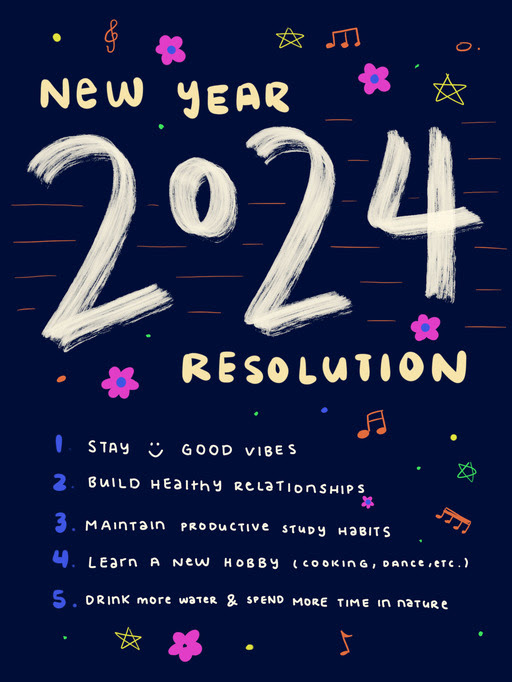 New YEAR
2024
RESOLUTION
1. STAY GOOD VIBES
2. BUILD HEalthy RelaTIONSHIPS
3. MAIntain PRODUCTIVE STUDY HaBITS
4. LEarn A New HOBBY (COOKING, Dance, etc.)
5. DRINK more water & SPEND MORE TIME In nature